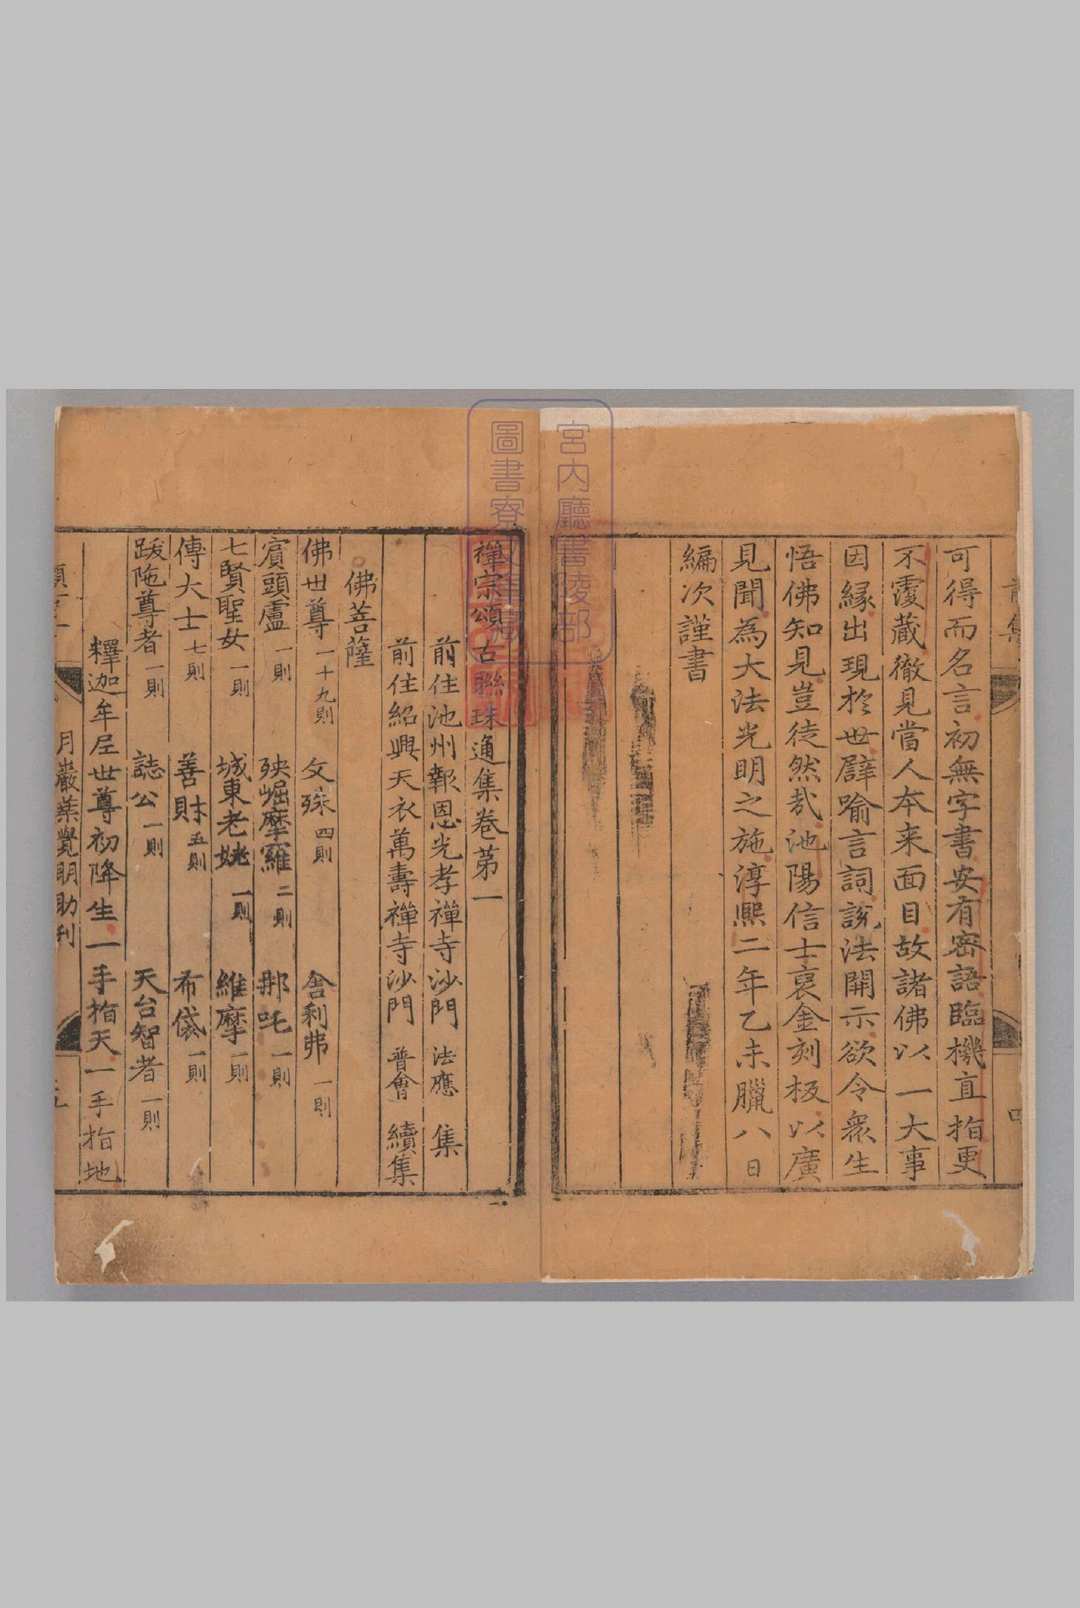 可得而名言初無字書安有密語臨機直指更
不覆藏徹見當人本来面目故諸佛以一大事
因縁出現於世譬喻言詞說法開示欲令衆生
悟佛知見豈徒然哉池陽信士裒金刻板以廣
見聞為大法光明之施淳熙二年乙未臘八日
編次謹書
宮内廳書陵部
圖書寮
禪宗頌古聯珠通集卷第一
前住池州報恩光孝禪寺沙門 法應 集
前住紹興天衣萬壽禪寺沙門 普會 續集
佛菩薩
佛世尊一十九則 文殊四則 舍利弗一則
賓頭盧一則 殃崛摩羅二則 那吒一則
七賢聖女一則 城東老姥一則 維摩一則
傅大士七則 善財五則 布袋一則
跋陁尊者一則 誌公一則 天台智者一則
釋迦牟尼世尊初降生一手指天一手指地
月巖葉覺明助刋